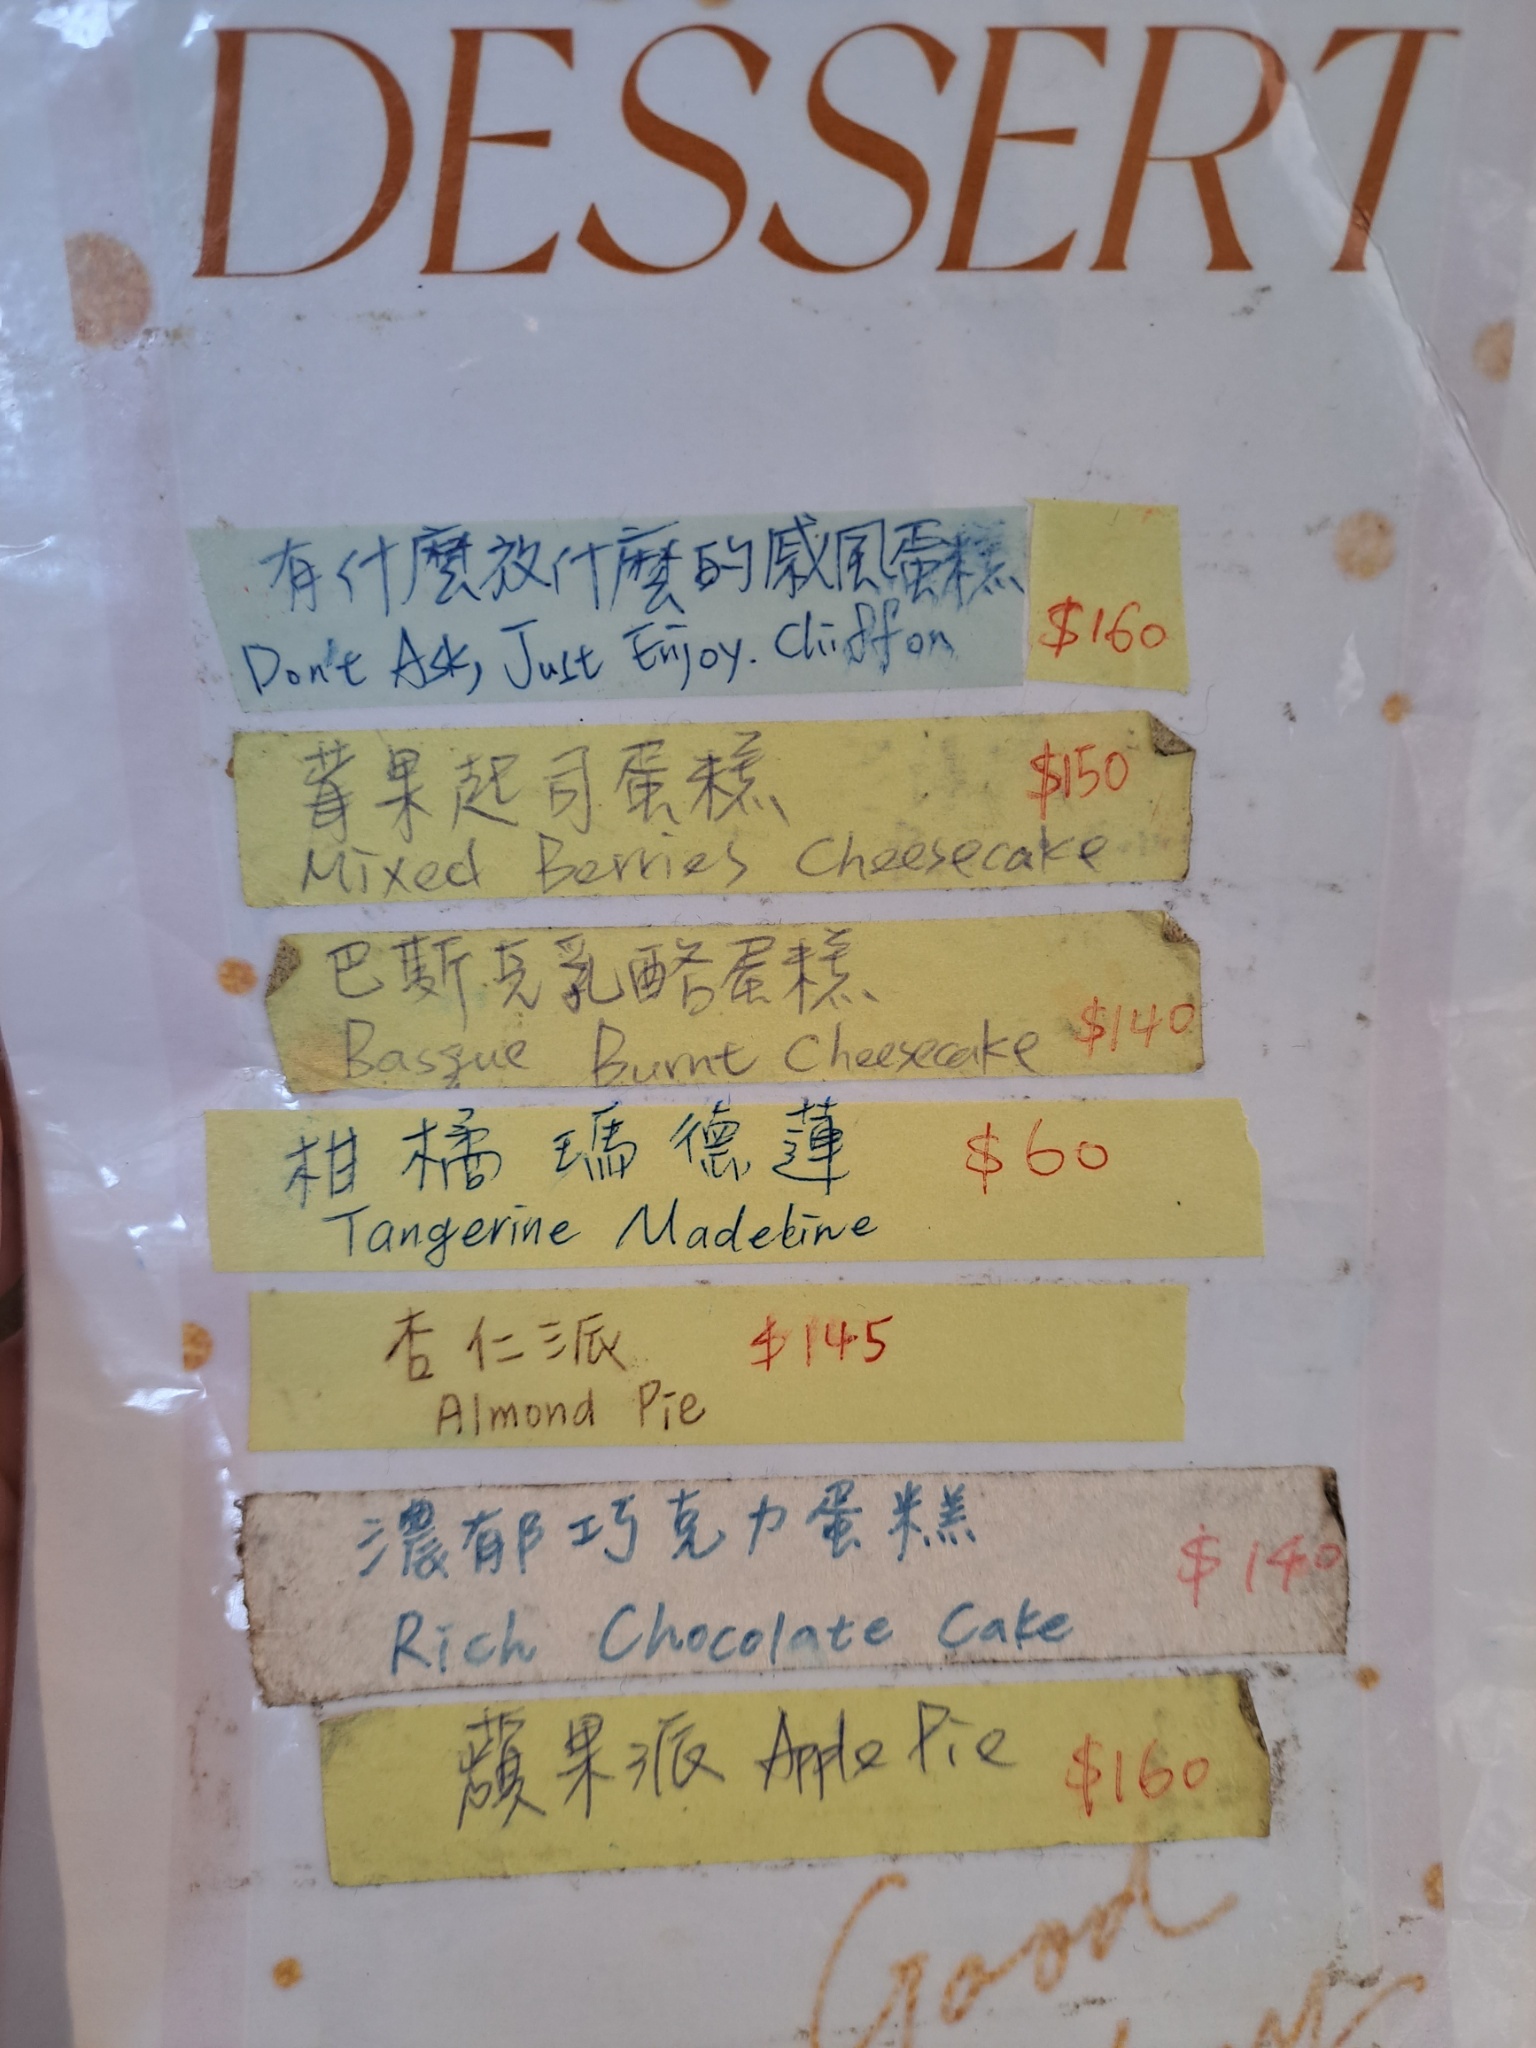 DESSERT
有什麼放什麼的戚風蛋糕
Don't Ask, Just Enjoy. Chiffon $160
莓果起司蛋糕 $150
Mixed Berries Cheesecake
巴斯克乳酪蛋糕
Basque Burnt Cheesecake $140
柑橘瑪德蓮 $60
Tangerine Madeline
杏仁派 $145
Almond Pie
濃郁巧克力蛋糕 $140
Rich Chocolate Cake
蘋果派 Apple Pie $160
Good